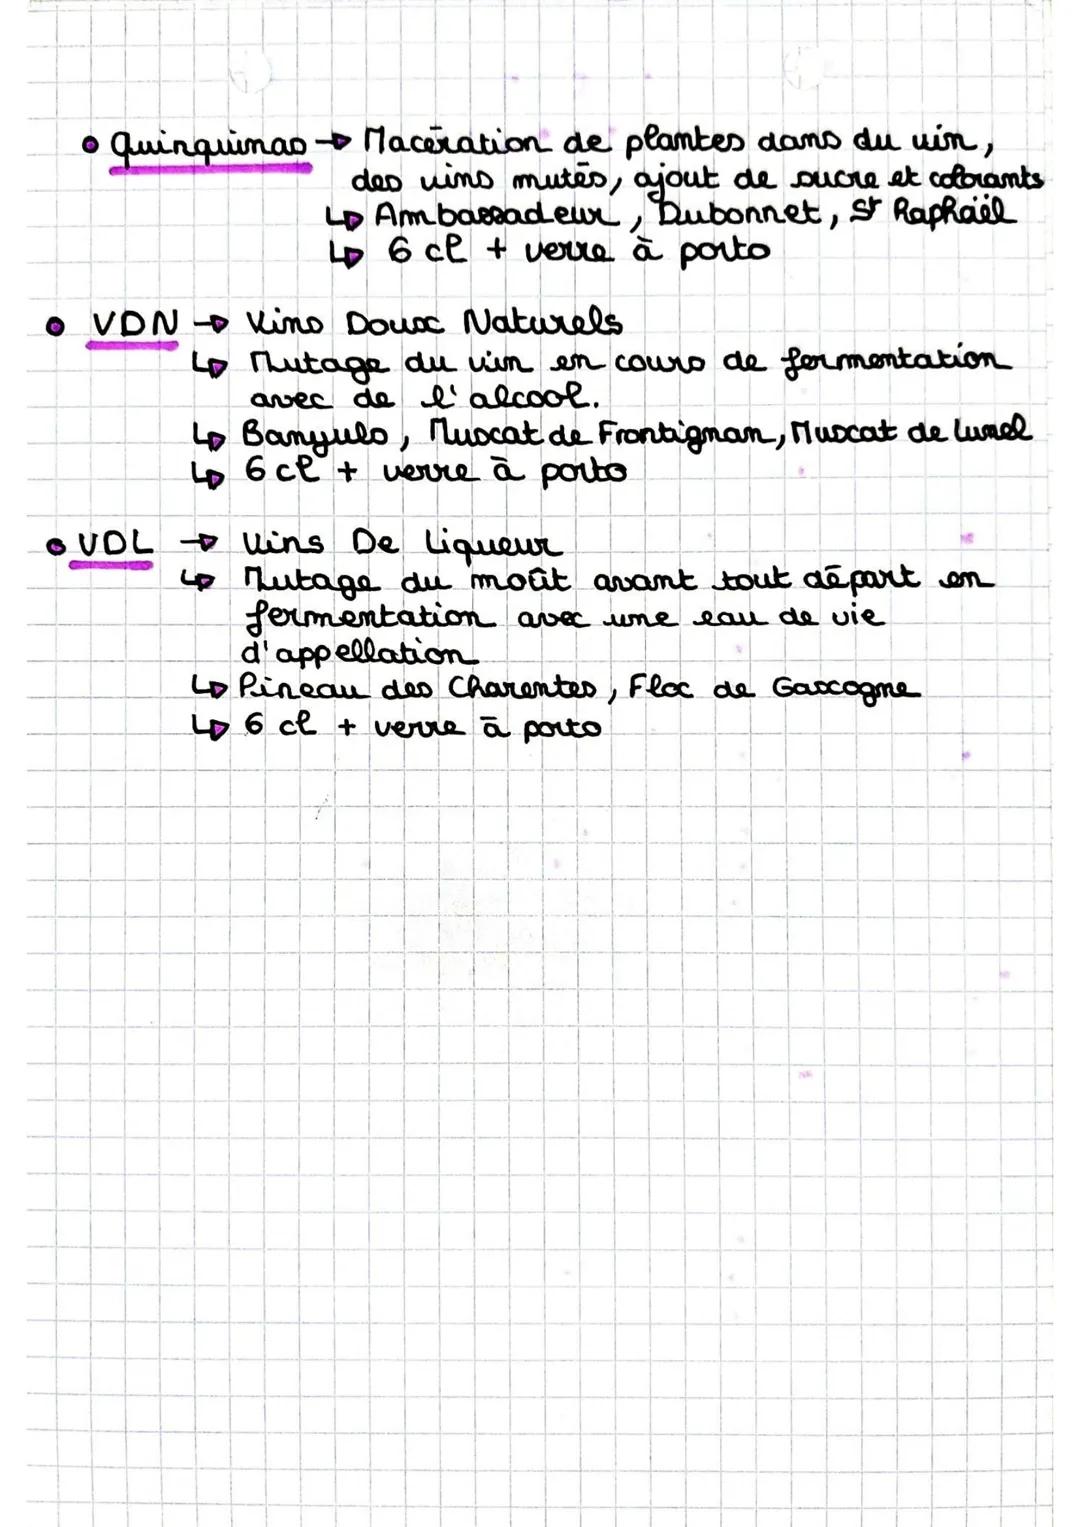 • Quinquinas → Macération de plantes dans du vin,
des vins mutés, ajout de sucre et colorants
↳ Ambassadeur, Dubonnet, St Raphaël
↳ 6 cl + verre à porto
• VDN → Vins Doux Naturels
↳ Mutage du vin en cours de fermentation
avec de l'alcool.
↳ Banyuls, Muscat de Frontignan, Muscat de Lunel
↳ 6 cl + verre à porto
• VDL → Vins De Liqueur
↳ Mutage du moût avant tout départ en
fermentation avec une eau de vie
d'appellation
↳ Pineau des Charentes, Floc de Gascogne
↳ 6 cl + verre à porto